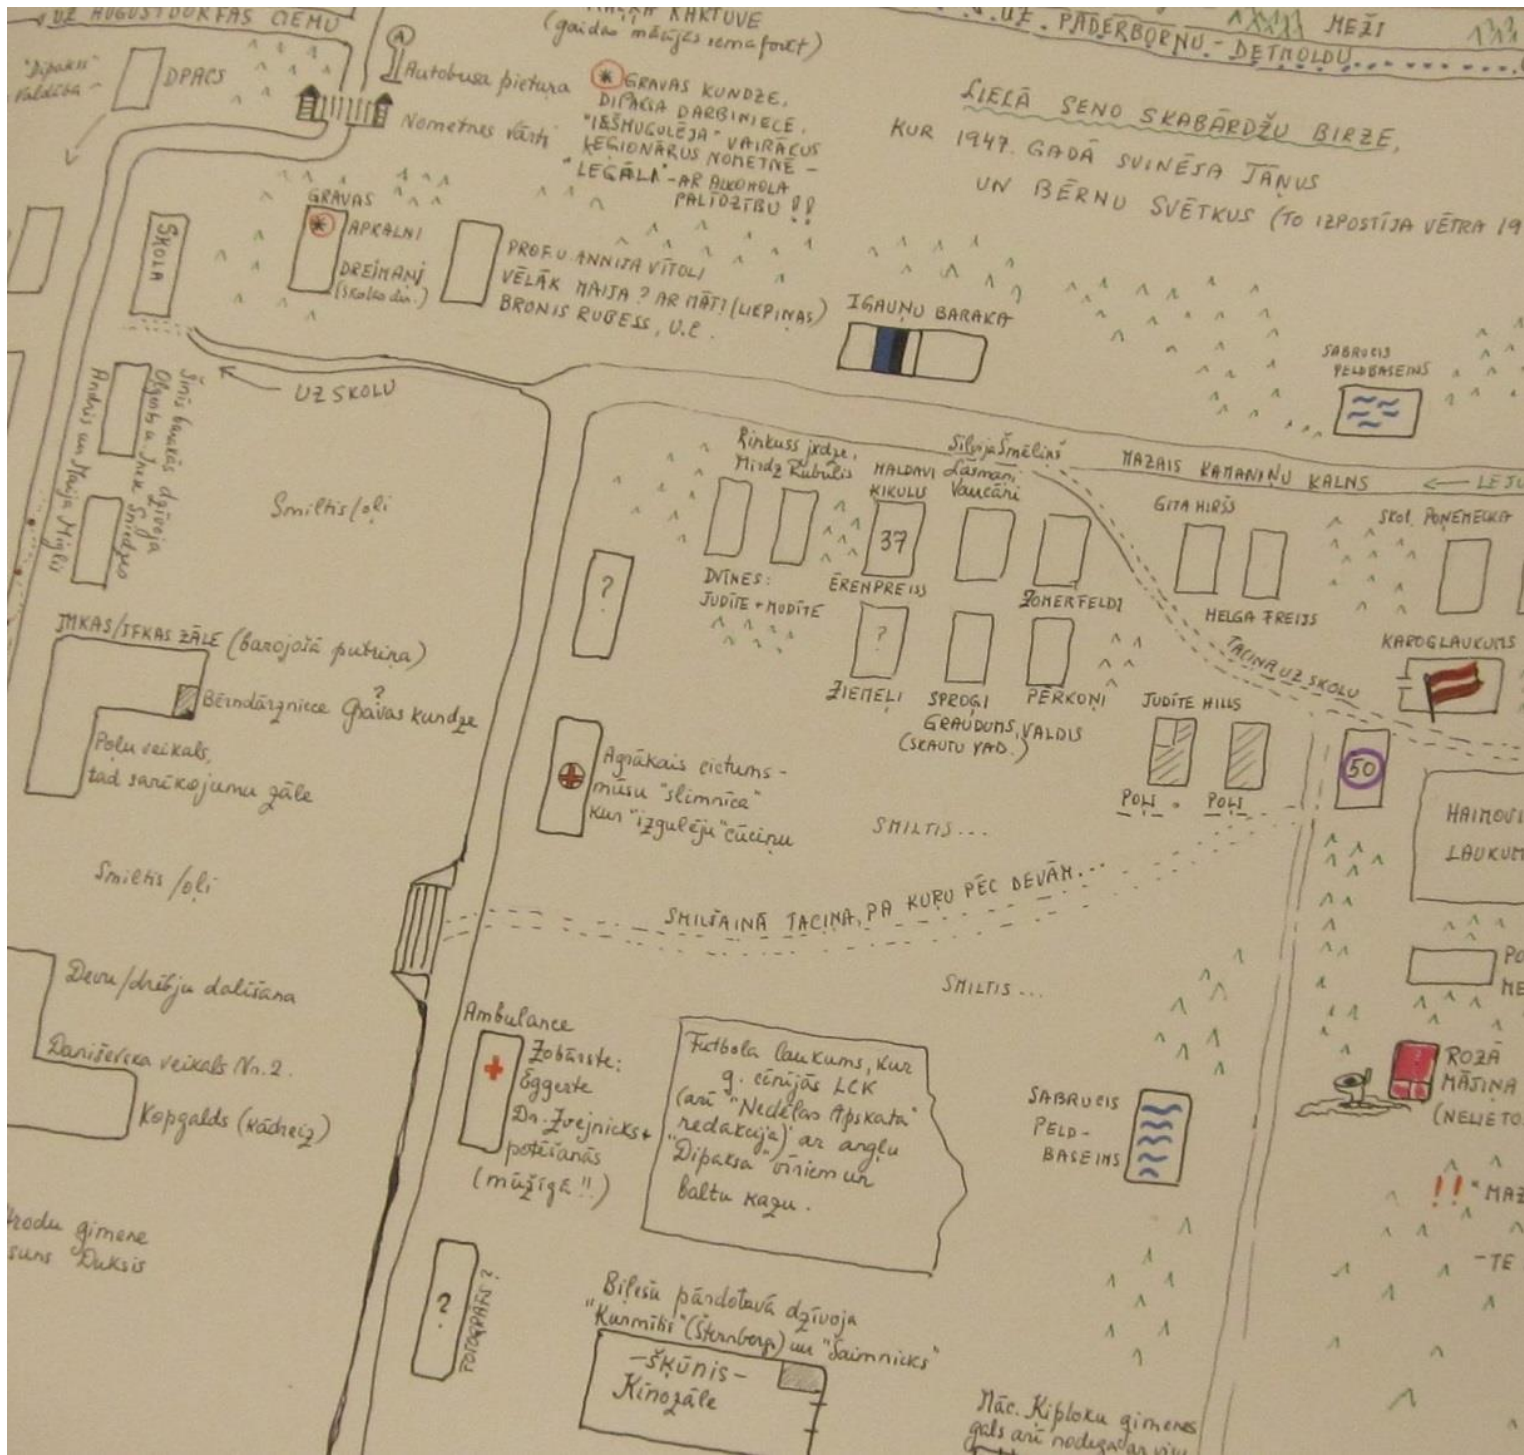 UZ AUGUSTDORFAS CIEMU
KAKTUVE
(gaidas mācījās semaforēt)
UZ PADERBORNU - DETMOLDU
MEŽI
"Dipaksi"
Valdība
DPACS
A
Autobusa pietura
Nometnes vārti
* GRAVAS KUNDZE,
DIPAKSA DARBINIECE,
"IEŠMUGULĒJA" VAIRĀKUS
LEĢIONĀRUS NOMETNĒ -
"LEGĀLI" - AR ALKOHOLA
PALĪDZĪBU !!
LIELĀ SENO SKABĀRDŽU BIRZE,
KUR 1947. GADĀ SVINĒJA JĀŅUS
UN BĒRNU SVĒTKUS (TO IZPOSTĪJA VĒTRA 19
SKOLA
GRAVAS
* APKALNI
DREIMAŅI
PROF. U. ANNIJA VĪTOLI
VĒLĀK MAIJA ? AR MĀTI (LIEPIŅAS)
BRONIS RUBESS, U.C.
IGAUŅU BARAKA
SABRUCIS
PELDBASEINS
UZ SKOLU
Šinīs barakās dzīvoja
Andris un Maija Miglis
Smiltis/oļi
Rinkuss jkdze,
Mirdz Rubulis
HALDAVI
KIKULUS
Silvija Šmēliņš
Lāsmaņi
Vancāni
MAZAIS KAMANIŅU KALNS
← LEJU
37
GITA HIRŠS
SKOL. POŅEMECKA
?
DVĪNES:
JUDĪTE + MUDĪTE
ĒRENPREISS
ZOMERFELDI
HELGA FREIJS
?
ZIEMEĻI
SPROĢI
GRAUDUMS, VALDIS
(SKAUTU VAD.)
PĒRKOŅI
TACIŅA UZ SKOLU
KAROGLAUKUMS
JMKAS/JFKAS ZĀLE (barojošā putriņa)
?
Bērndārzniece Gravas kundze
Poļu veikals,
tad sarīkojumu zāle
JUDĪTE HILLS
POĻI
POĻI
50
HAIMOVI
LAUKUM
Agrākais cietums -
mūsu "slimnīca"
kur "izgulēju" cūciņu
SMILTIS...
Smiltis/oļi
SMILŠAINĀ TACIŅA, PA KURU PĒC DEVĀM...
SMILTIS...
Devu/drēbju dalīšana
Daniševska veikals Nr. 2.
Kopgalds (kādreiz)
Ambulance
Zobārste:
Eggerte
Dr. Zvejnieks +
potēšanās
(mūžīgā !!)
Futbola laukums, kur
g. cīnījās LCK
(arī "Nedēļas Apskata"
redakcija) ar angļu
"Dipaksa" vīriem un
Baltu kazu.
SABRUCIS
PELD-
BASEINS
PO
ME
ROZĀ
MĀJIŅA
(NELIETO
!! "MAZ
- TE
ģimene
suns Duksis
?
FOTOGRAFS?
Biļešu pārdotavā dzīvoja
"Kurmītis" (Šternbergs) un "Saimnieks"
- ŠĶŪNIS -
Kinozāle
Māc. Ķiploku ģimenes
gals arī